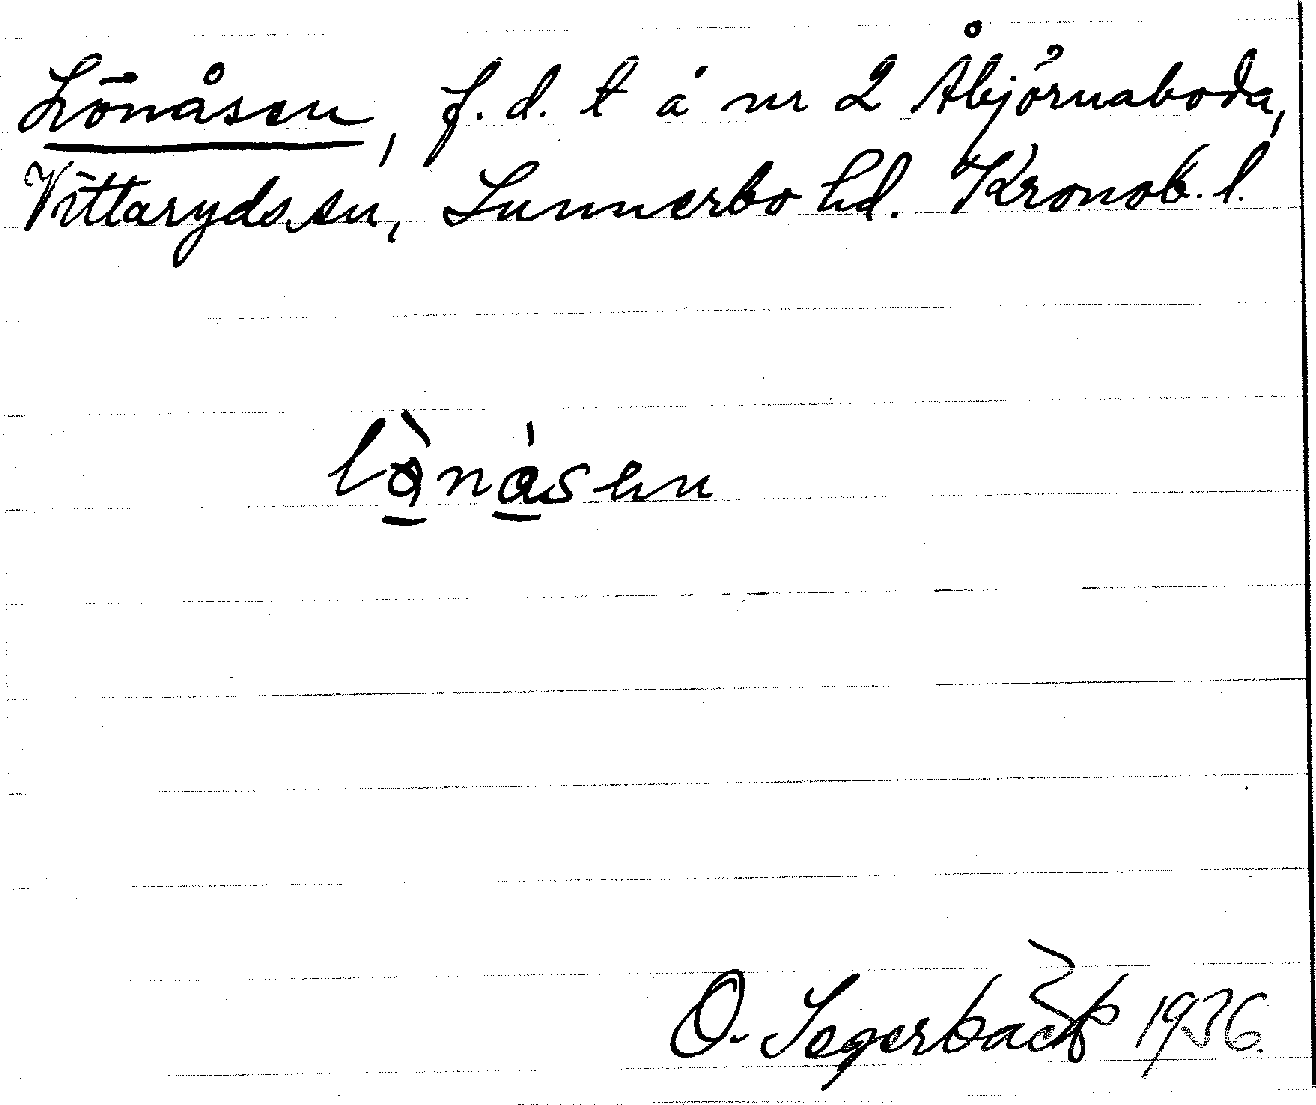 Lönåsen, f. d. t å nr 2 Åbjörnaboda,
Vittaryds sn, Sunnerbo hd. Kronob. l.
lònåsen
O. Segerbäck 1936.